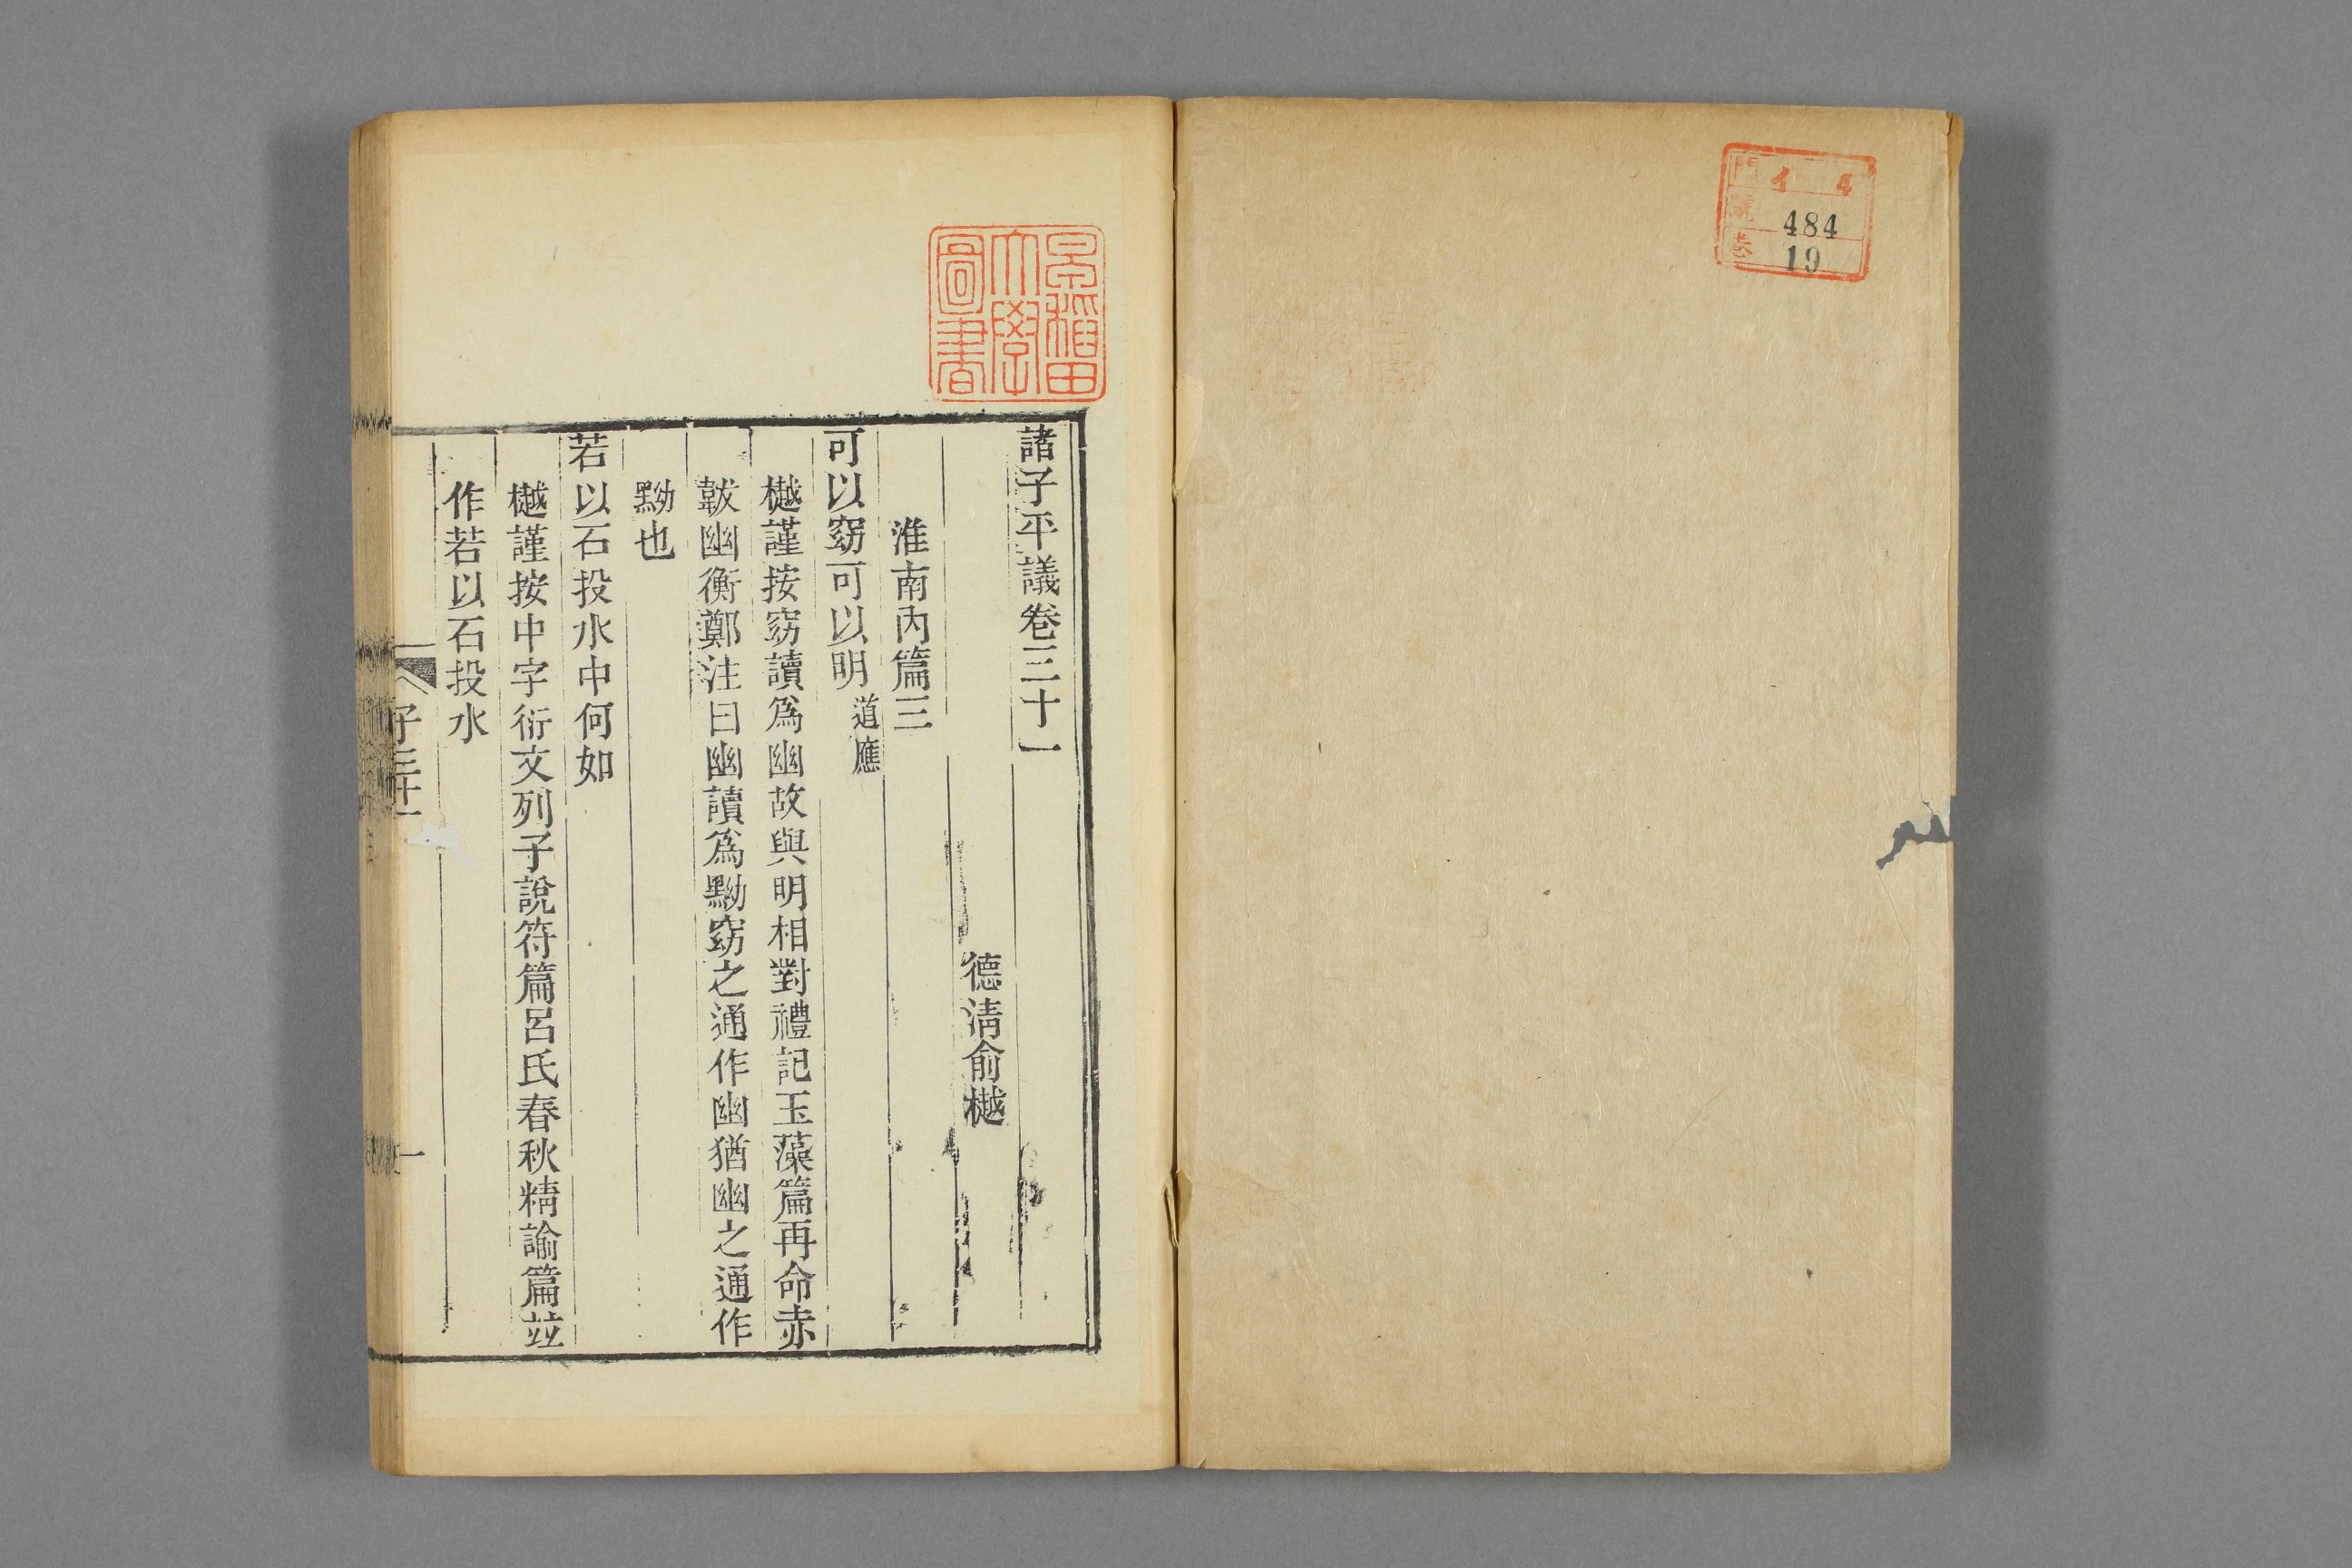 門 イ 4
號 484
卷 19
早稲田
大學
圖書
諸子平議卷三十一
德清俞樾
淮南內篇三
可以窈可以明道應
樾謹按窈讀爲幽故與明相對禮記玉藻篇再命赤
韍幽衡鄭注曰幽讀爲黝窈之通作幽猶幽之通作
黝也
若以石投水中何如
樾謹按中字衍文列子說符篇呂氏春秋精諭篇竝
作若以石投水
子三十一
一